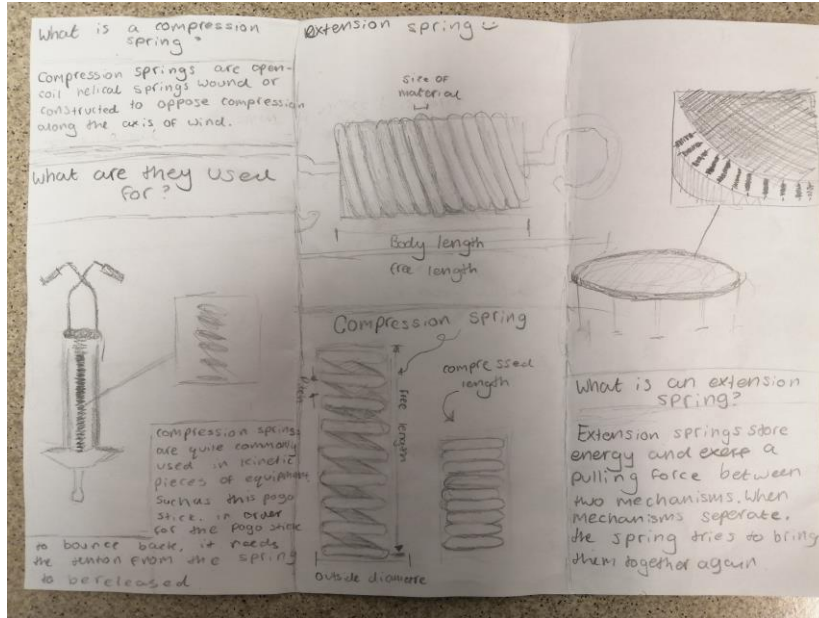 What is a compression
spring?
Compression springs are open-
coil helical springs wound or
constructed to oppose compression
along the axis of wind.
What are they used
for?
compression springs
are quite commonly
used in kinetic
pieces of equipment
Such as this pogo
stick. in order
for the pogo stick
to bounce back, it needs
the tention from the spring
to be released
extension spring
size of
material
Body length
free length
Compression spring
Pitch
free length
compressed
length
outside diametre
What is an extension
spring?
Extension springs store
energy and exere a
pulling force between
two mechanisms. When
mechanisms seperate.
the spring tries to bring
them together again